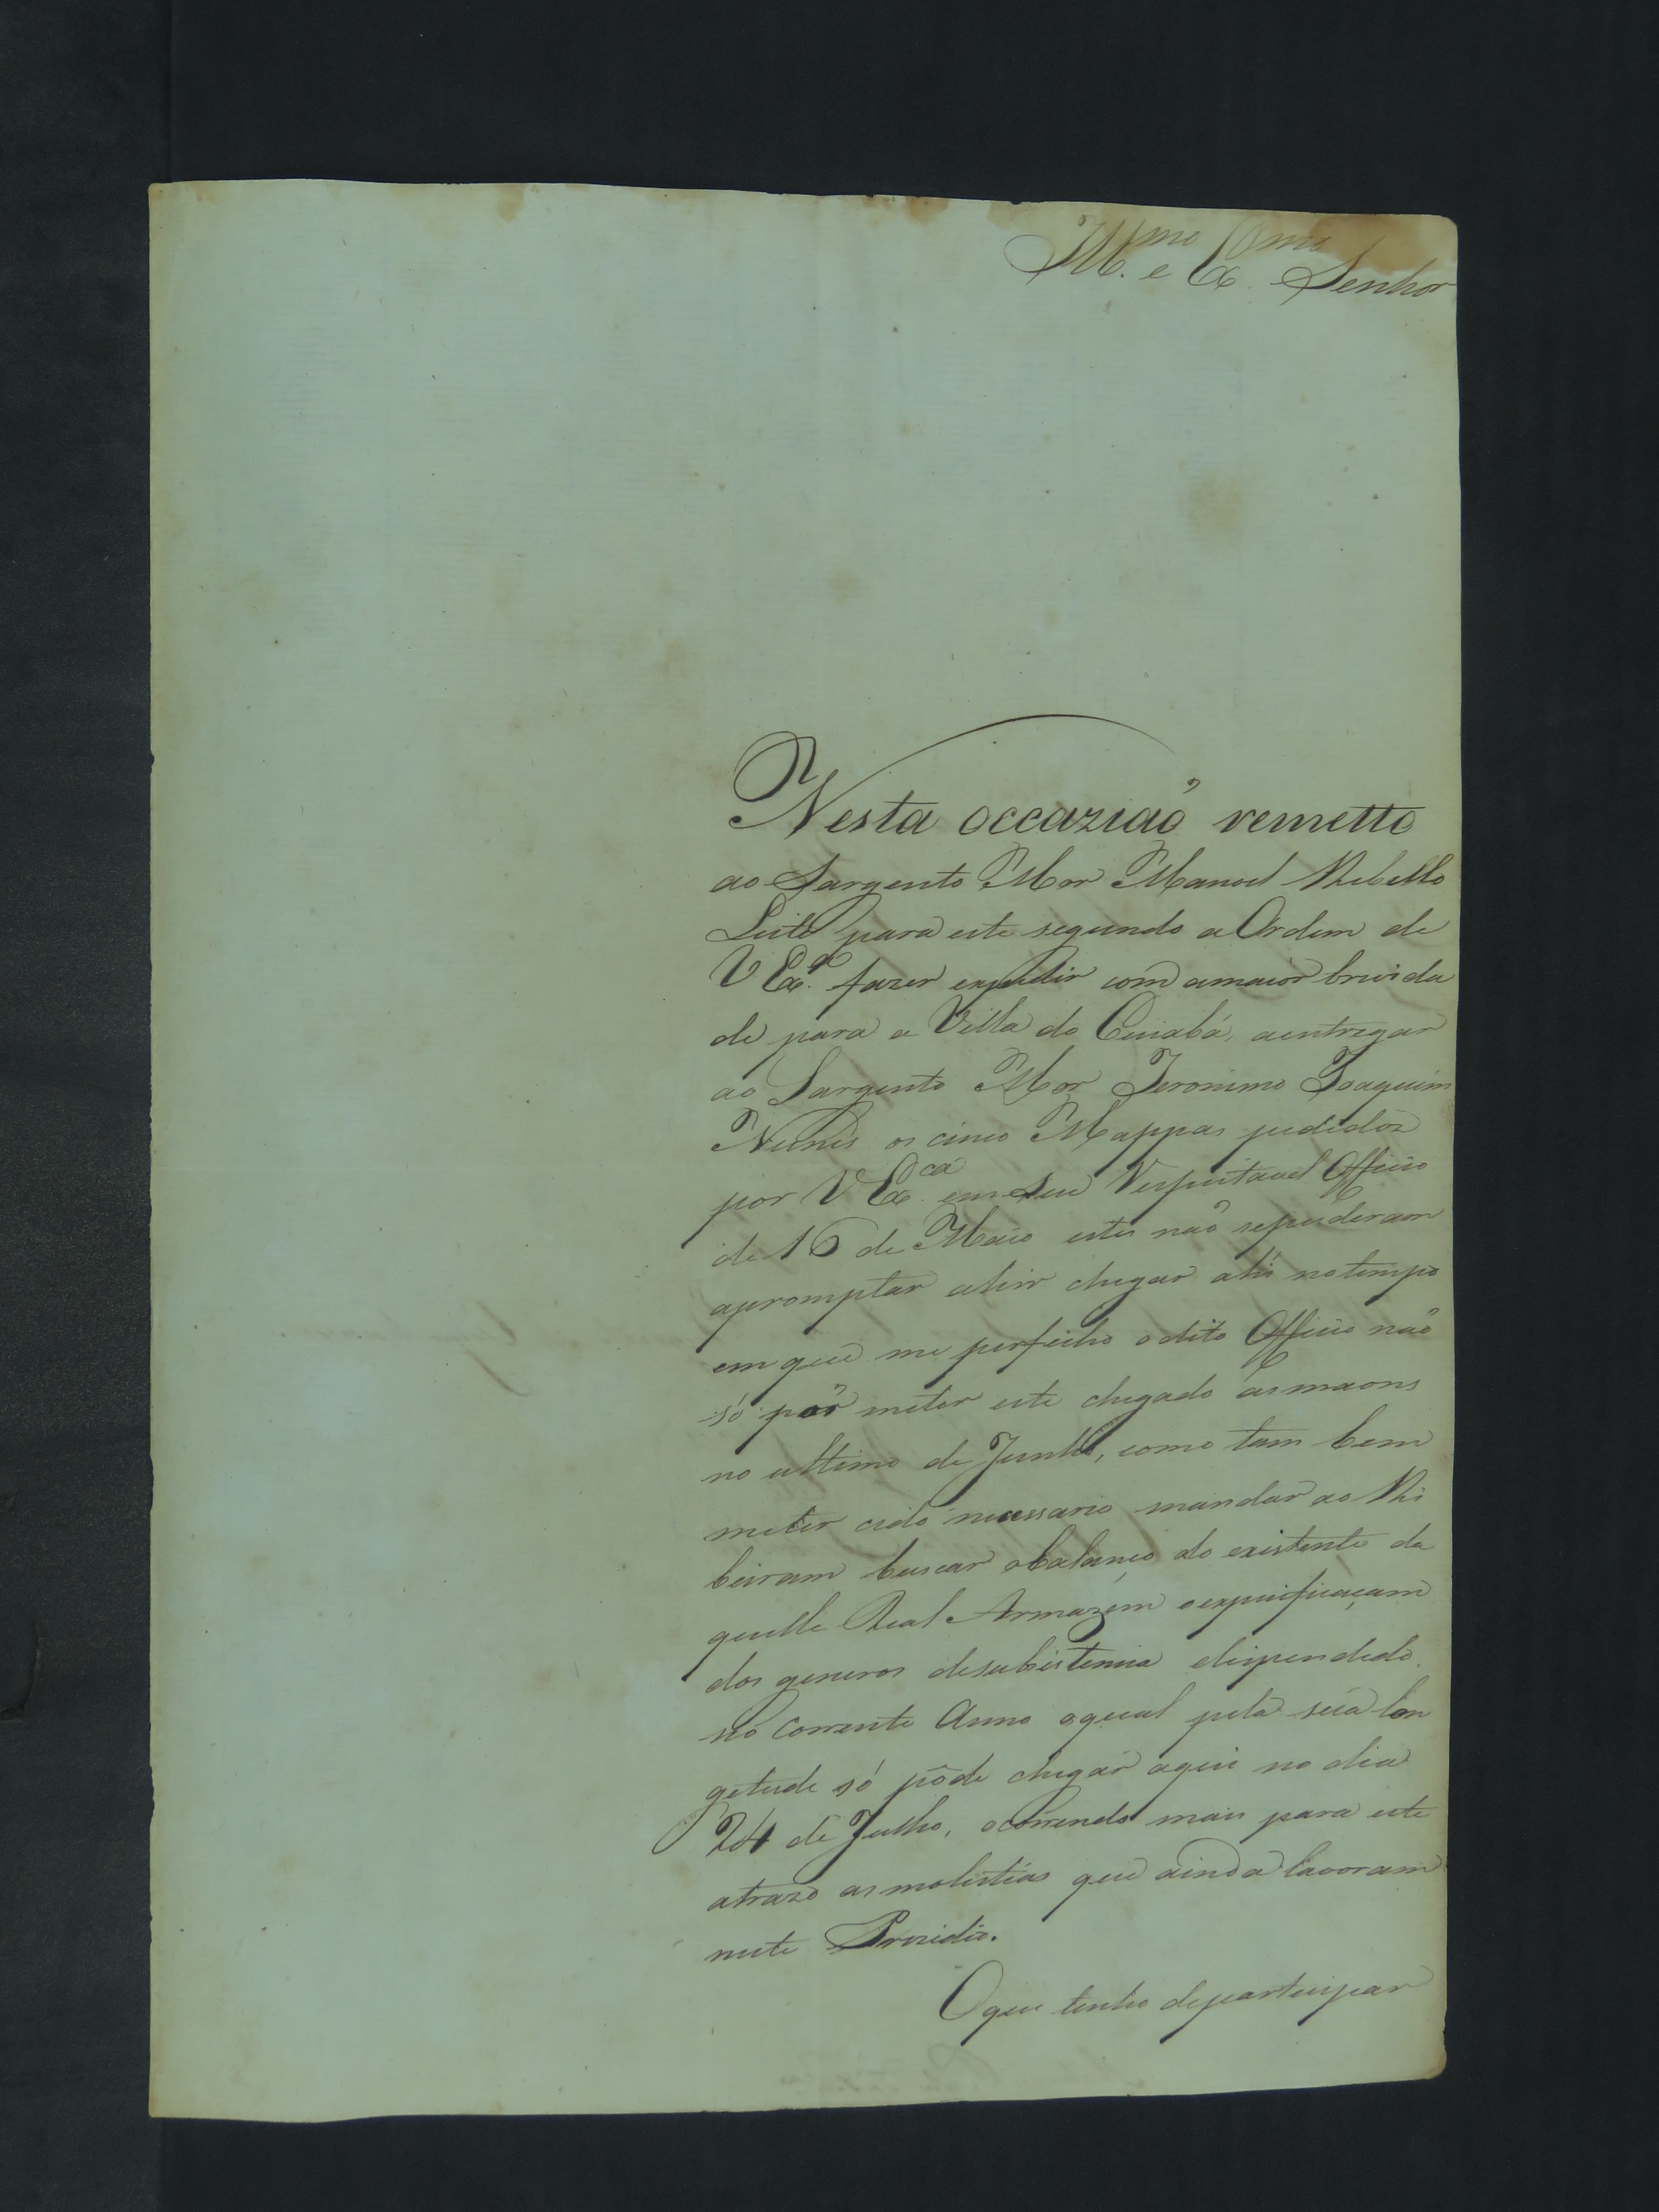 Ill.mo e Ex.mo Senhor
Nesta occaziaõ remetto
ao Sargento Mor Manoel Rebello
Leite para este segundo a Ordem de
V Ex.ª fazer expedir com amaior brivida
de para a Villa do Cuiabá, aentregar
ao Sargento Mor Jeronimo Joaquim
Nunes os cinco Mappas pedidos
por V Ex.ca em seu Respeitavel Officio
de 16 de Maio estes naõ sepuderam
apromptar ahir chegar ahi notempo
em que me perfeiho odito Officio naõ
só por meter este chegado ás maons
no ultimo de Junho, como tam bem
meter cido necessario mandar ao Mi
beiram buscar obalanço do existente da
quelle Real Armazem eexpicificaçam
dos generos desubistencia dispendido
no corrente Anno oqual pela sua lon
getude só pôde chegar aqui no dia
24 de Julho, ocorrendo mais para este
atrazo as molestias que ainda lavoram
neste Prezidio.
Oque tenho departicipar